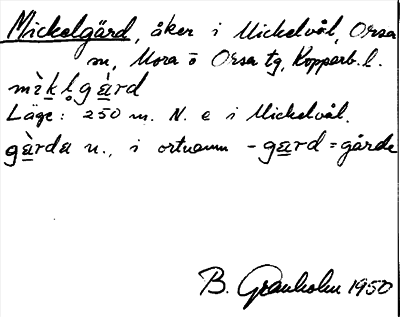 Mickelgärd, åker i Mickelvål, Orsa
sn, Mora o Orsa tg, Kopparb. l.
mìkl̥gàrd
Läge: 250 m. N. e i Mickelvål.
gàrda n., i ortnamn -gard = gärde
B. Granholm 1950